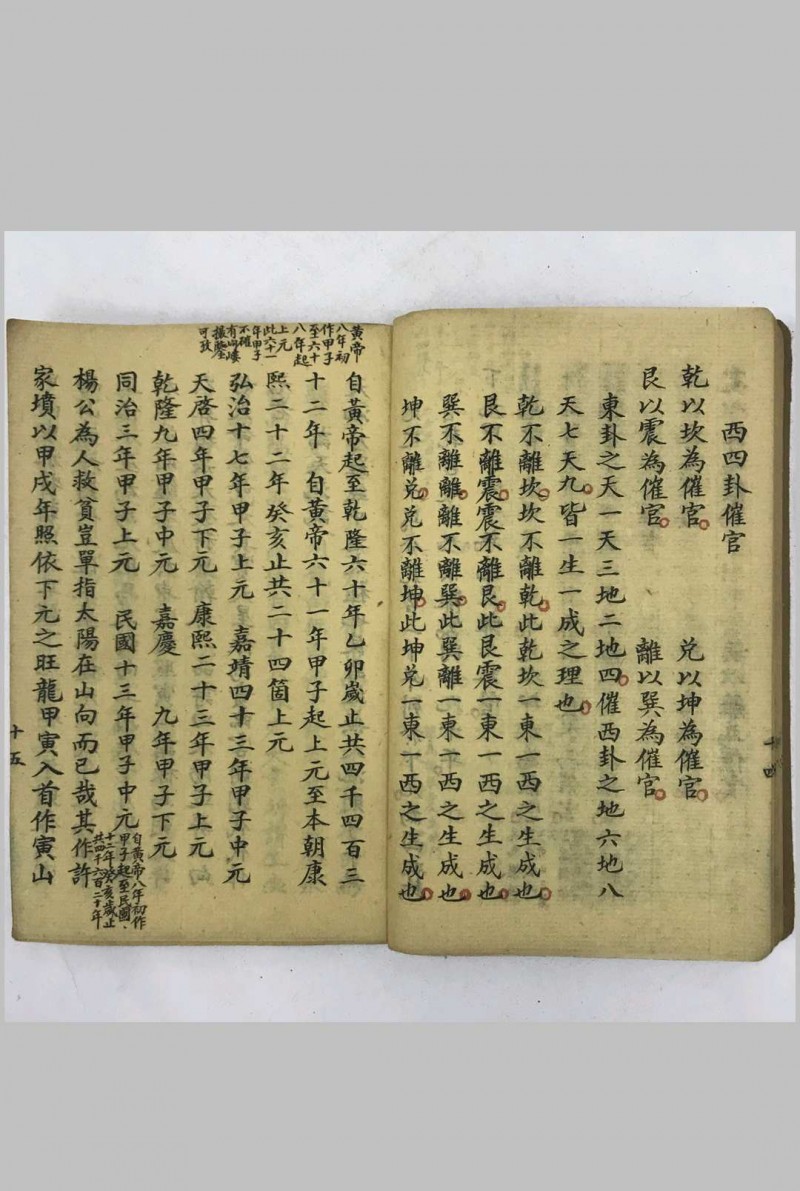 西四卦催官
乾以坎為催官 兌以坤為催官
艮以震為催官 離以巽為催官
東卦之天一天三地二地四催西卦之地六地八
天七天九皆一生一成之理也
乾不離坎坎不離乾此乾坎一東一西之生成也
艮不離震震不離艮此艮震一東一西之生成也
巽不離離離不離巽此巽離一東一西之生成也
坤不離兌兌不離坤此坤兌一東一西之生成也
十四
黃帝
八年初
作甲子
至六十
八年起
上元
此六十一
年甲子
不確
有岣嶁
可攷
自黃帝起至乾隆六十年乙卯歲止共四千四百三
十二年 自黃帝六十一年甲子起上元至本朝康
熙二十二年癸亥止共二十四箇上元
弘治十七年甲子上元 嘉靖四十三年甲子中元
天啓四年甲子下元 康熙二十三年甲子上元
乾隆九年甲子中元 嘉慶 九年甲子下元
同治三年甲子上元 民國十三年甲子中元
自黃帝八年初作
甲子起至民國
十二年癸亥歲止
共四千六百二十年
楊公為人救貧豈單指太陽在山向而已哉其作許
家墳以甲戌年照依下元之旺龍甲寅入首作寅山
十五